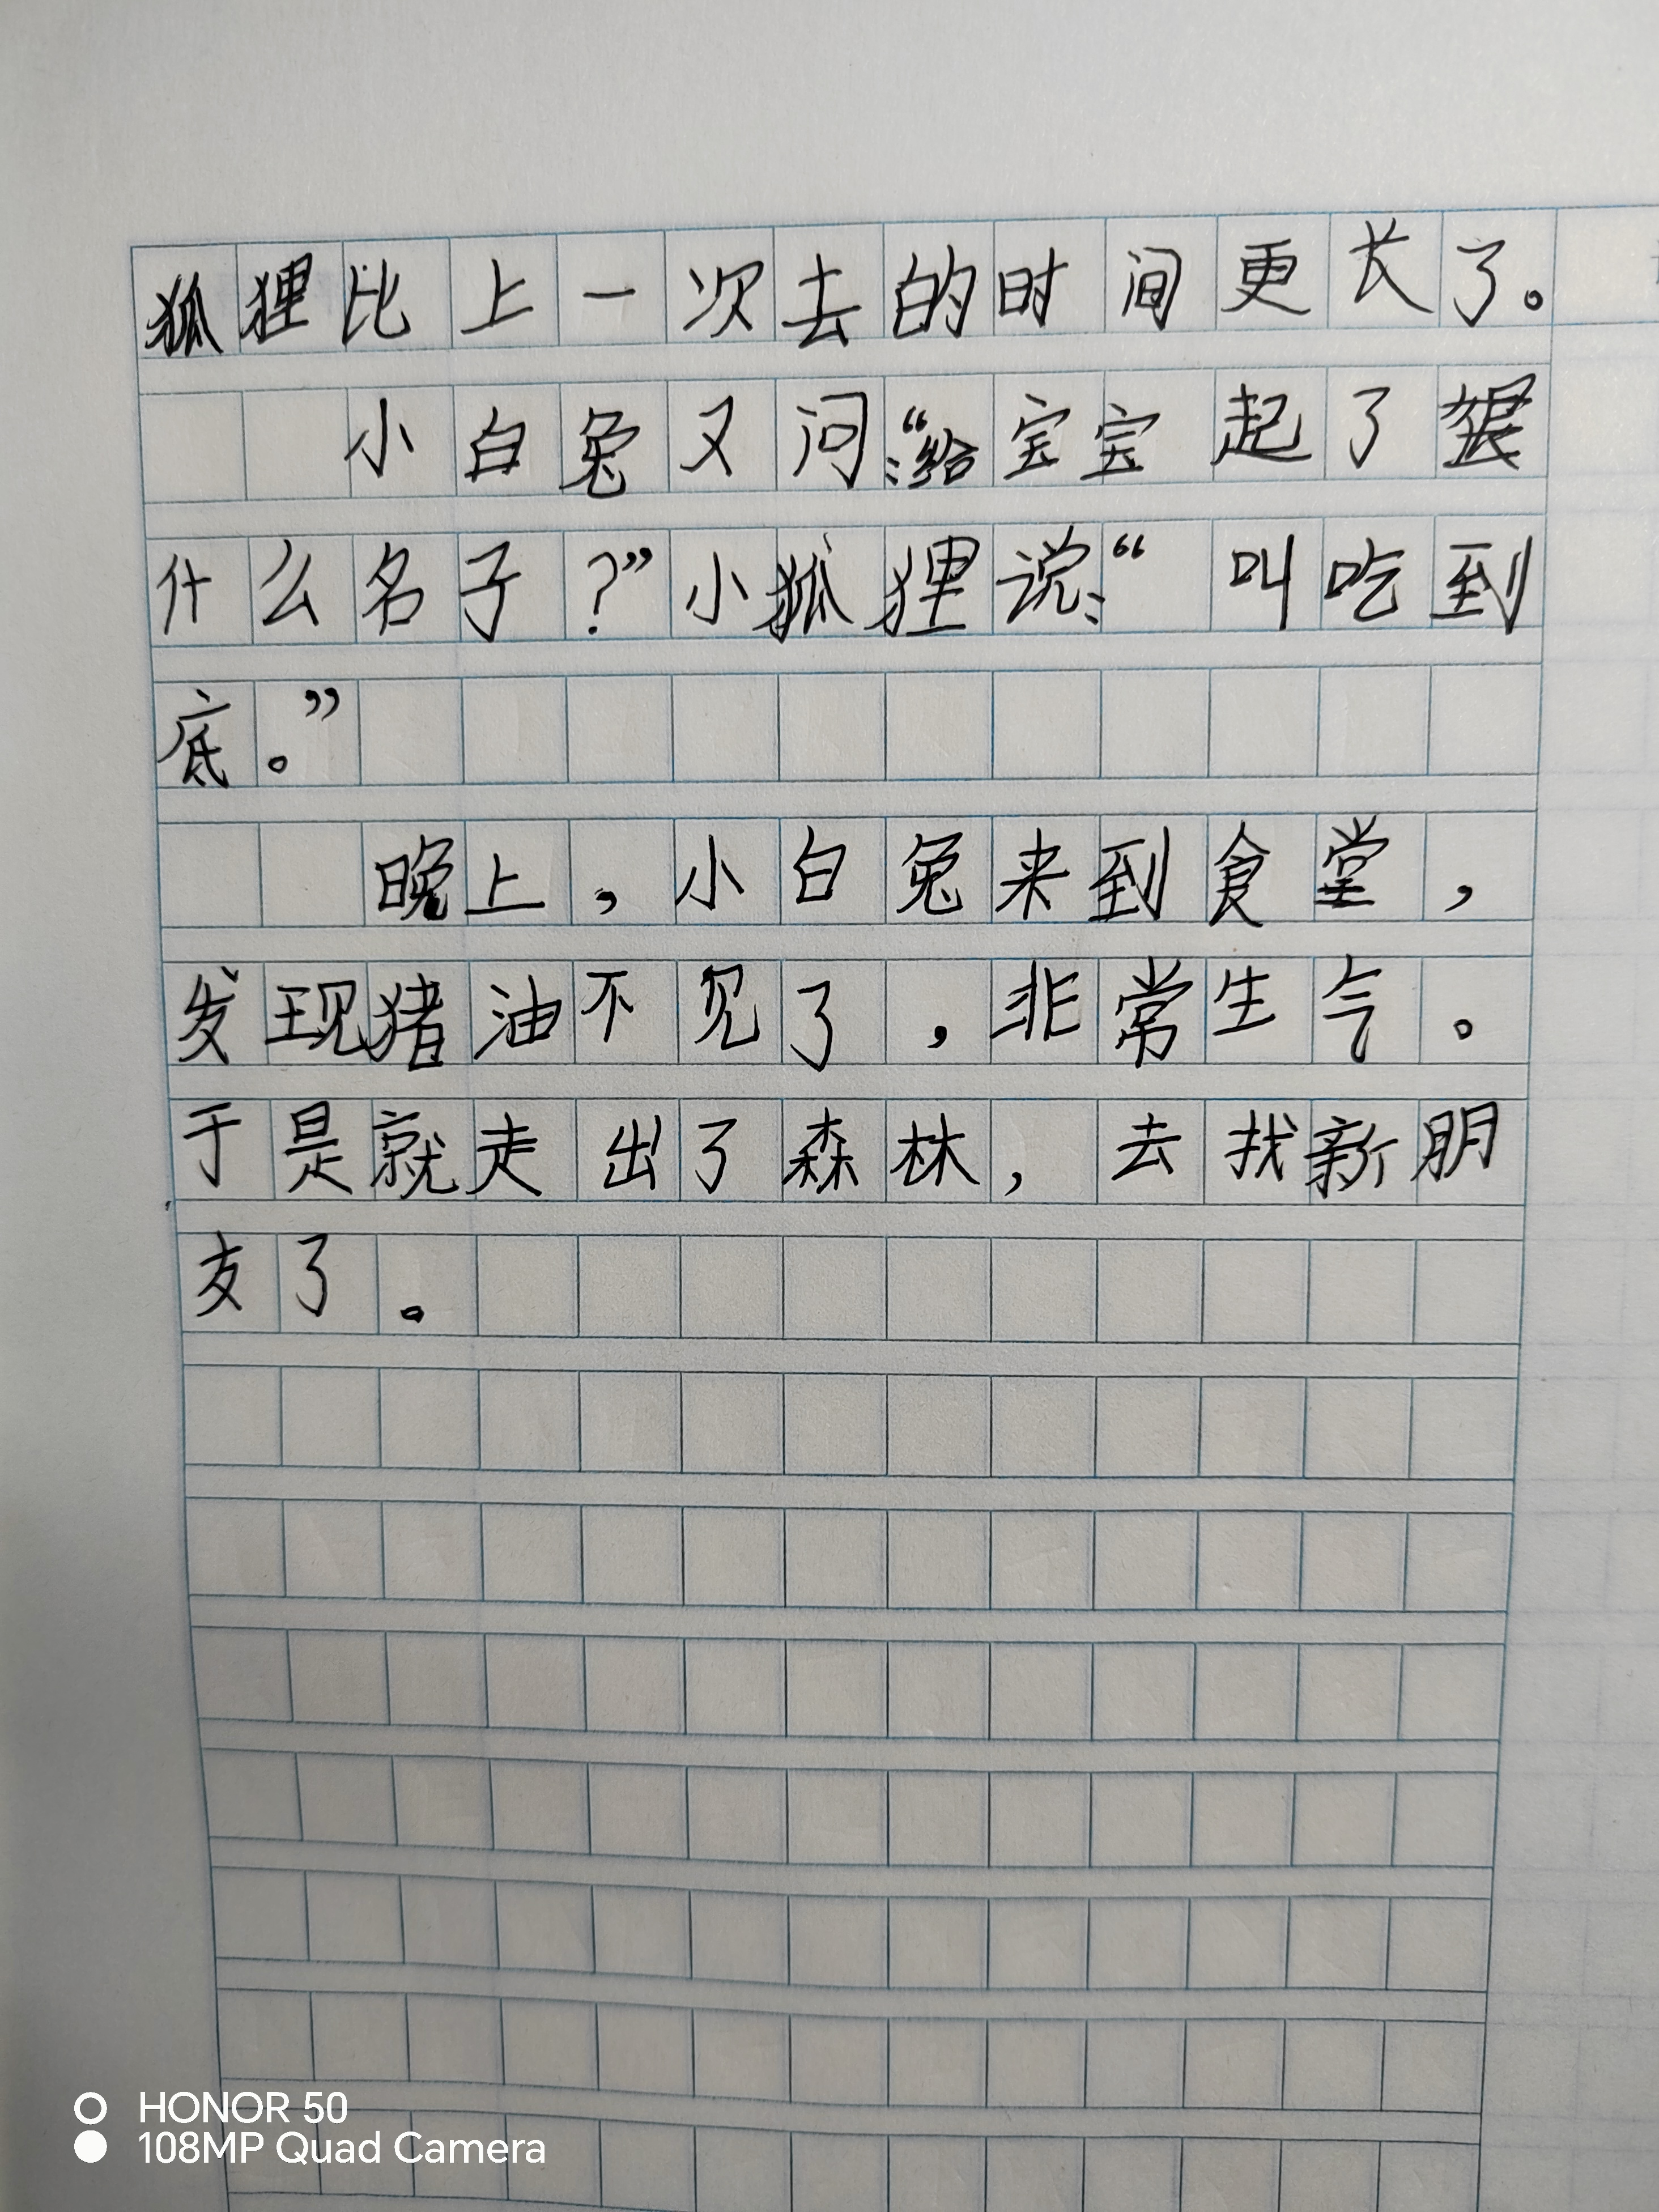 狐狸比上一次去的时间更长了。
小白兔又问:“给宝宝起了
什么名子?”小狐狸说:“叫吃到
底。”
晚上,小白兔来到食堂,
发现猪油不见了,非常生气。
于是就走出了森林,去找新朋
友了。
HONOR 50
108MP Quad Camera